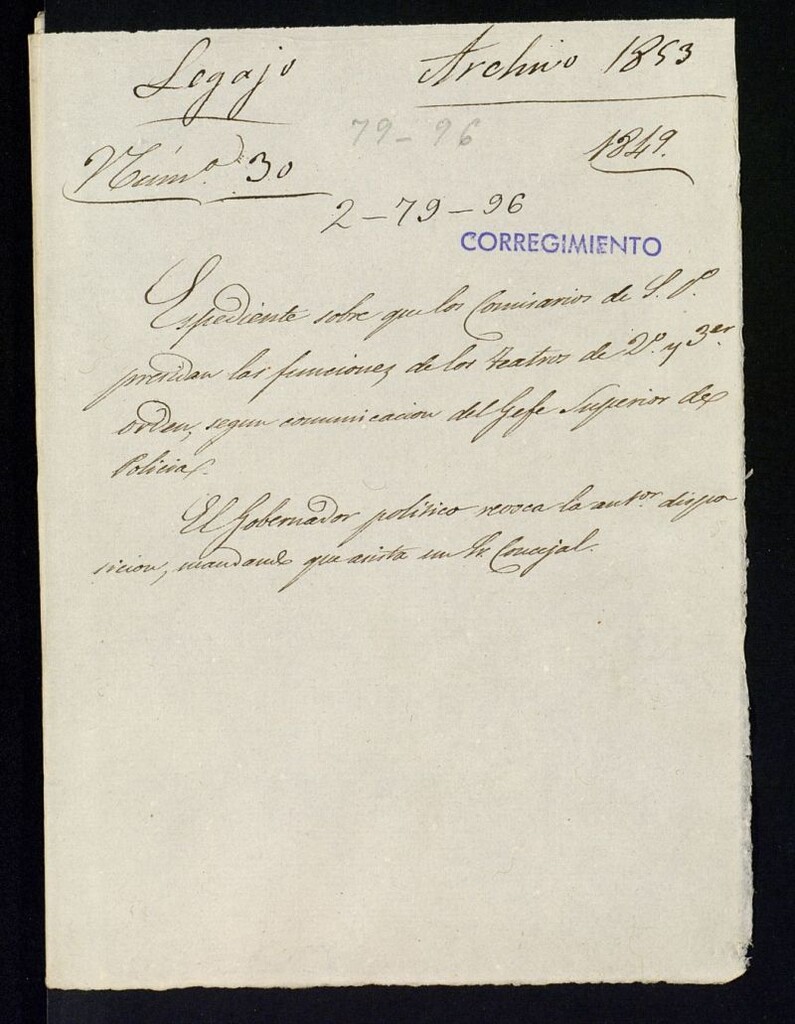 Legajo
Archivo 1853
79-96
Núm.º 30
1849.
2-79-96
CORREGIMIENTO
Espediente sobre que los Comisarios de S. P.
presidan las funciones de los teatros de 2.º y 3.er
orden, segun comunicacion del Gefe Superior de
Policia.
El Gobernador politico revoca la ant.or dispo
sicion, mandando que asista un Sr. Concejal.